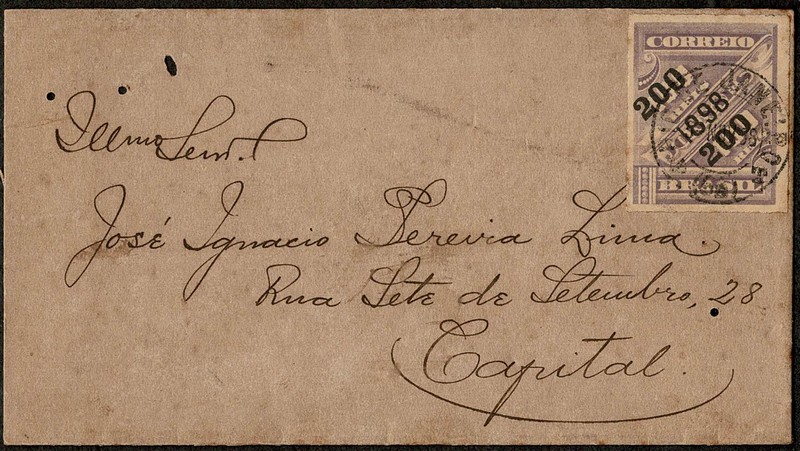 CORREIO
200
1898
200
BRAZIL
Illmo Senr.
José Ignacio Pereira Lima.
Rua Sete de Setembro, 28
Capital.